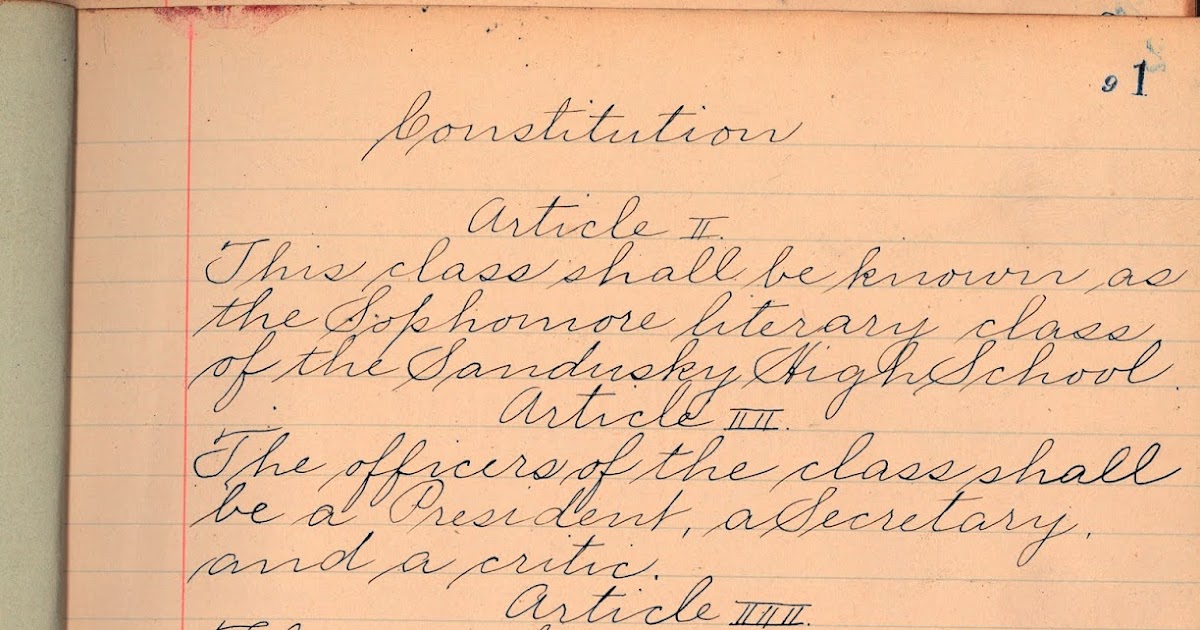 9 1
Constitution
Article I.
This class shall be known as
the Sophomore literary class
of the Sandusky High School.
Article II.
The officers of the class shall
be a President, a Secretary,
and a critic.
Article III.